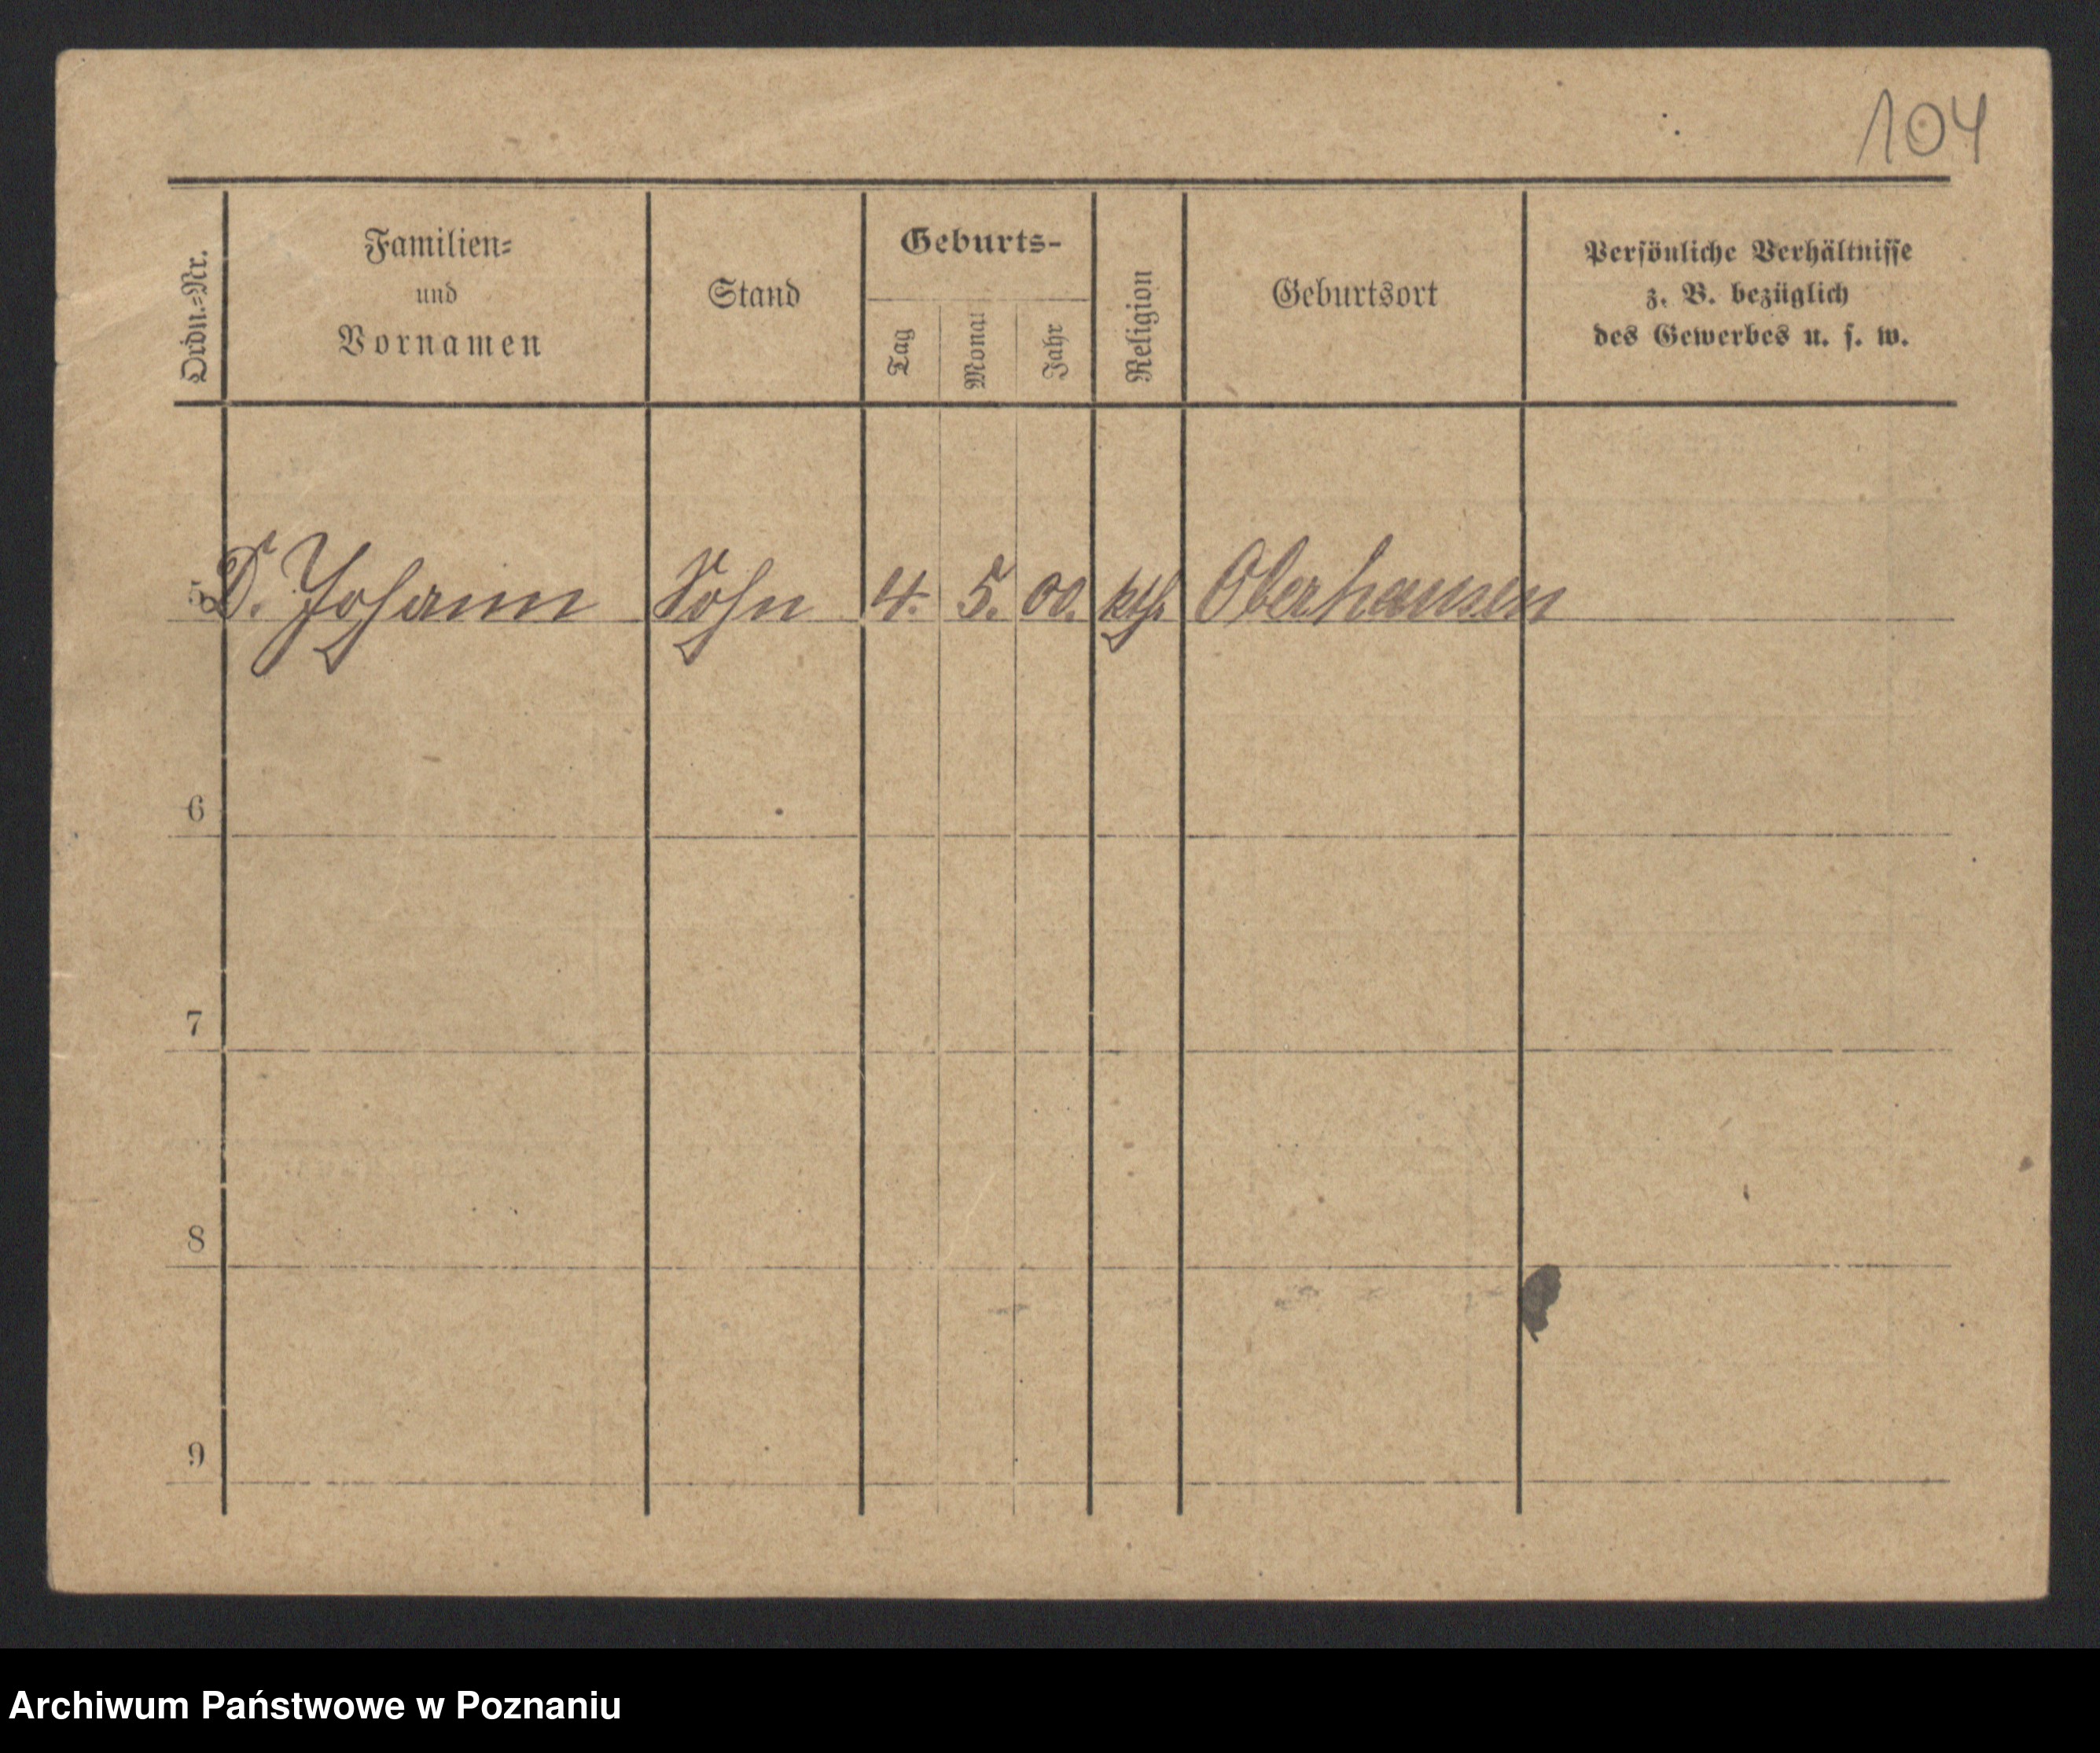 104
Ordn.=Nr.
Familien=
und
Vornamen
Stand
Geburts-
Tag
Monat
Jahr
Religion
Geburtsort
Persönliche Verhältnisse
z. B. bezüglich
des Gewerbes u. s. w.
5 D. Johann Sohn 4. 5. 00. kth. Oberhausen
6
7
8
9
Archiwum Państwowe w Poznaniu